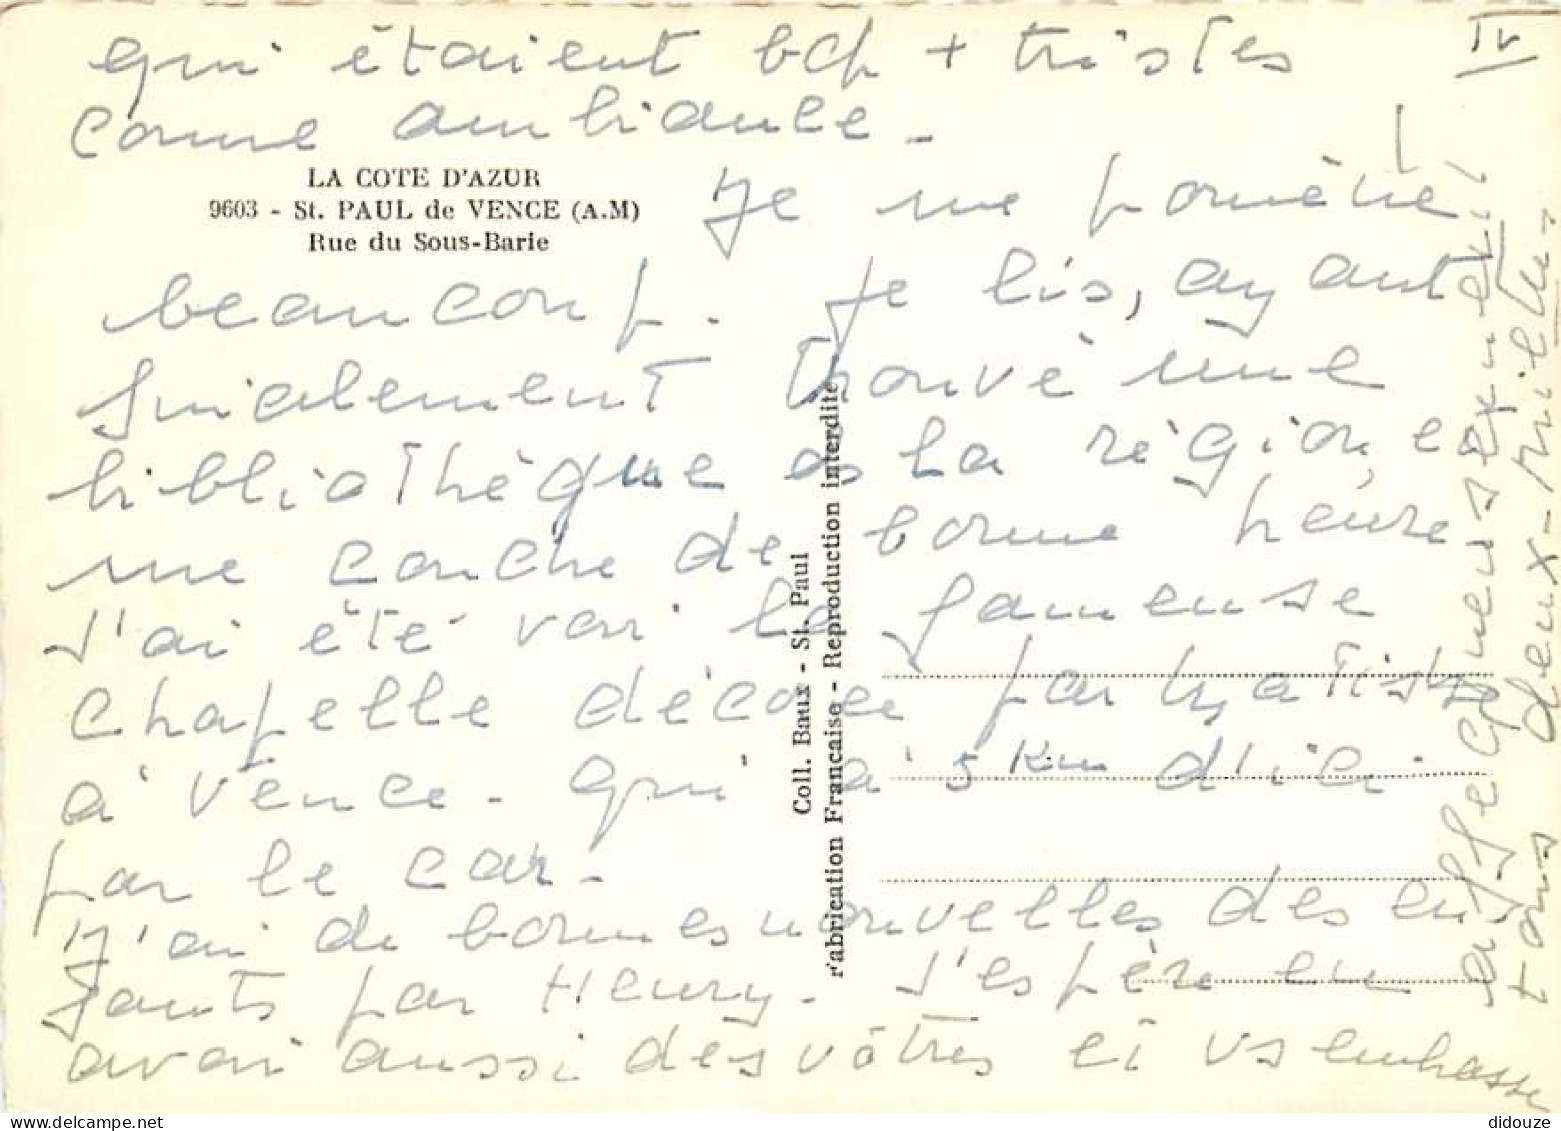 IV
qui étaient bcp + tristes
comme ambiance -
LA COTE D'AZUR
9603 - St. PAUL de VENCE (A.M)
Rue du Sous-Barie
Je me promène
beaucoup. Je lis, ayant
finalement trouvé une
bibliothèque ds la région, et
me couche de bonne heure
J'ai été voir la fameuse
chapelle décorée par Matisse
à Vence - qui à 5 Km d'ici
par le car -
J'ai de bonnes nouvelles des en
fants par Henry. J'espère en
avoir aussi des vôtres et vs embrasse
affectueusement
tous deux -
Coll. Baux - St. Paul
Fabrication Francaise - Reproduction interdite
didouze